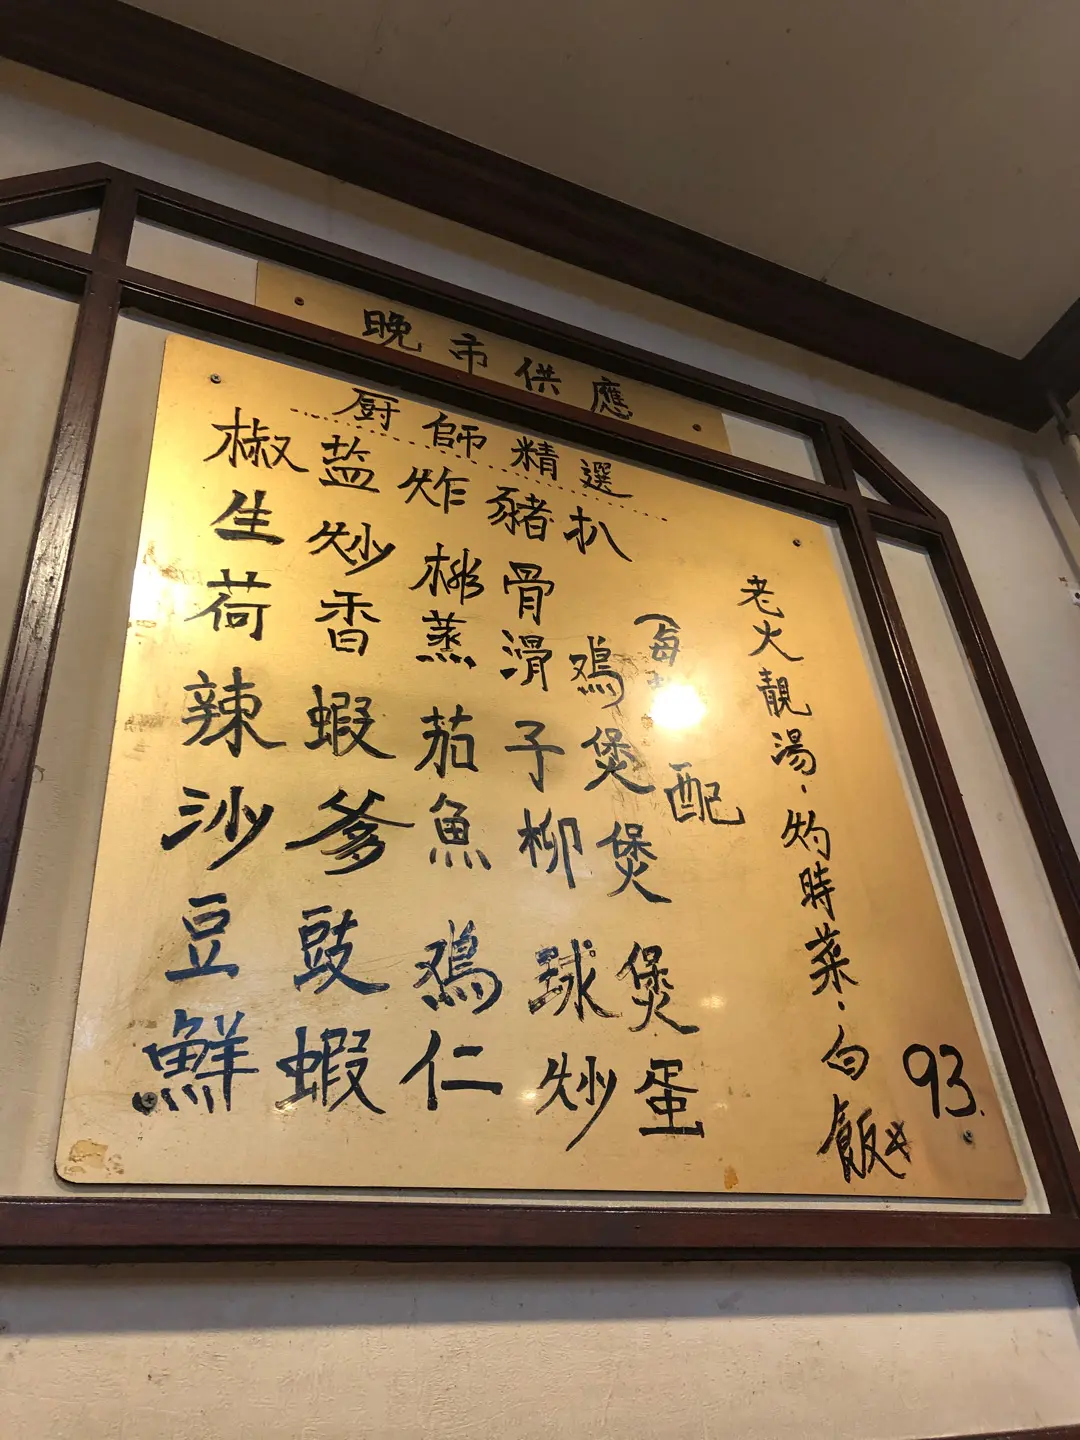 晚市供應
廚師精選
椒盐炸豬扒
生炒排骨
荷香蒸滑鸡
辣蝦茄子煲
沙爹魚柳煲
豆豉鸡球煲
鮮蝦仁炒蛋
(每
配
老火靚湯．灼時菜．白飯
93.